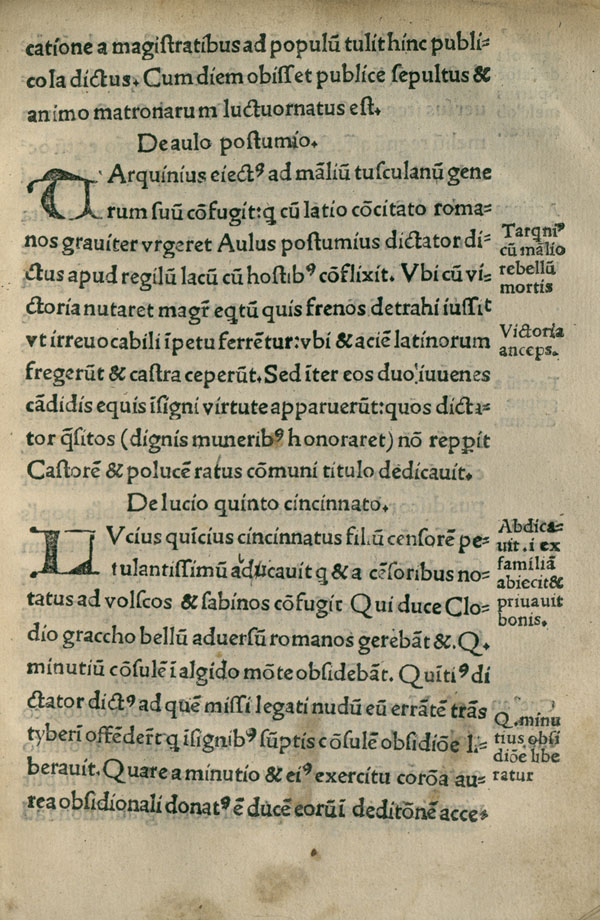 catione a magistratibus ad populū tulit hinc publi-
cola dictus. Cum diem obisset publice sepultus &
animo matronarum luctuornatus est.
De aulo postumio.
TArquinius eiectꝰ ad māliū tusculanū gene
rum suū cōfugit: q cū latio cōcitato roma-
nos grauiter vrgeret Aulus postumius dictator di-
ctus apud regilū lacū cū hostibꝰ cōflixit. Vbi cū vi-
ctoria nutaret magr̄ eqtū quis frenos detrahi iussit
vt irreuocabili īpetu ferrētur: vbi & aciē latinorum
fregerūt & castra ceperūt. Sed īter eos duo iuuenes
cādidis equis īsigni virtute apparuerūt: quos dicta-
tor q̄sitos (dignis muneribꝰ honoraret) nō repp̄it
Castorē & polucē ratus cōmuni titulo dedicauit.
De lucio quinto cincinnato.
LVcius quīcius cincinnatus filiū censorē pe-
tulantissimū abdicauit q & a cēsoribus no-
tatus ad volscos & sabinos cōfugit Qui duce Clo-
dio graccho bellū aduersū romanos gerebāt & Q.
minutiū cōsulē ī algido mōte obsidebāt. Quītiꝰ di
ctator dictꝰ ad quē missi legati nudū eū errātē trās
tyberī offēdert̄ q īsignibꝰ sūptis cōsulē obsidiōe li-
berauit. Quare a minutio & eiꝰ exercitu corōa au-
rea obsidionali donatꝰ ē ducē eorūī deditōnē acce-
Tarqniꝰ
cū mālio
rebellū
mortis
Victoria
anceps.
Abdica-
uit .i ex
familiā
abiecit &
priuauit
bonis.
Q. minu
tius obsi
diōe libe
ratur